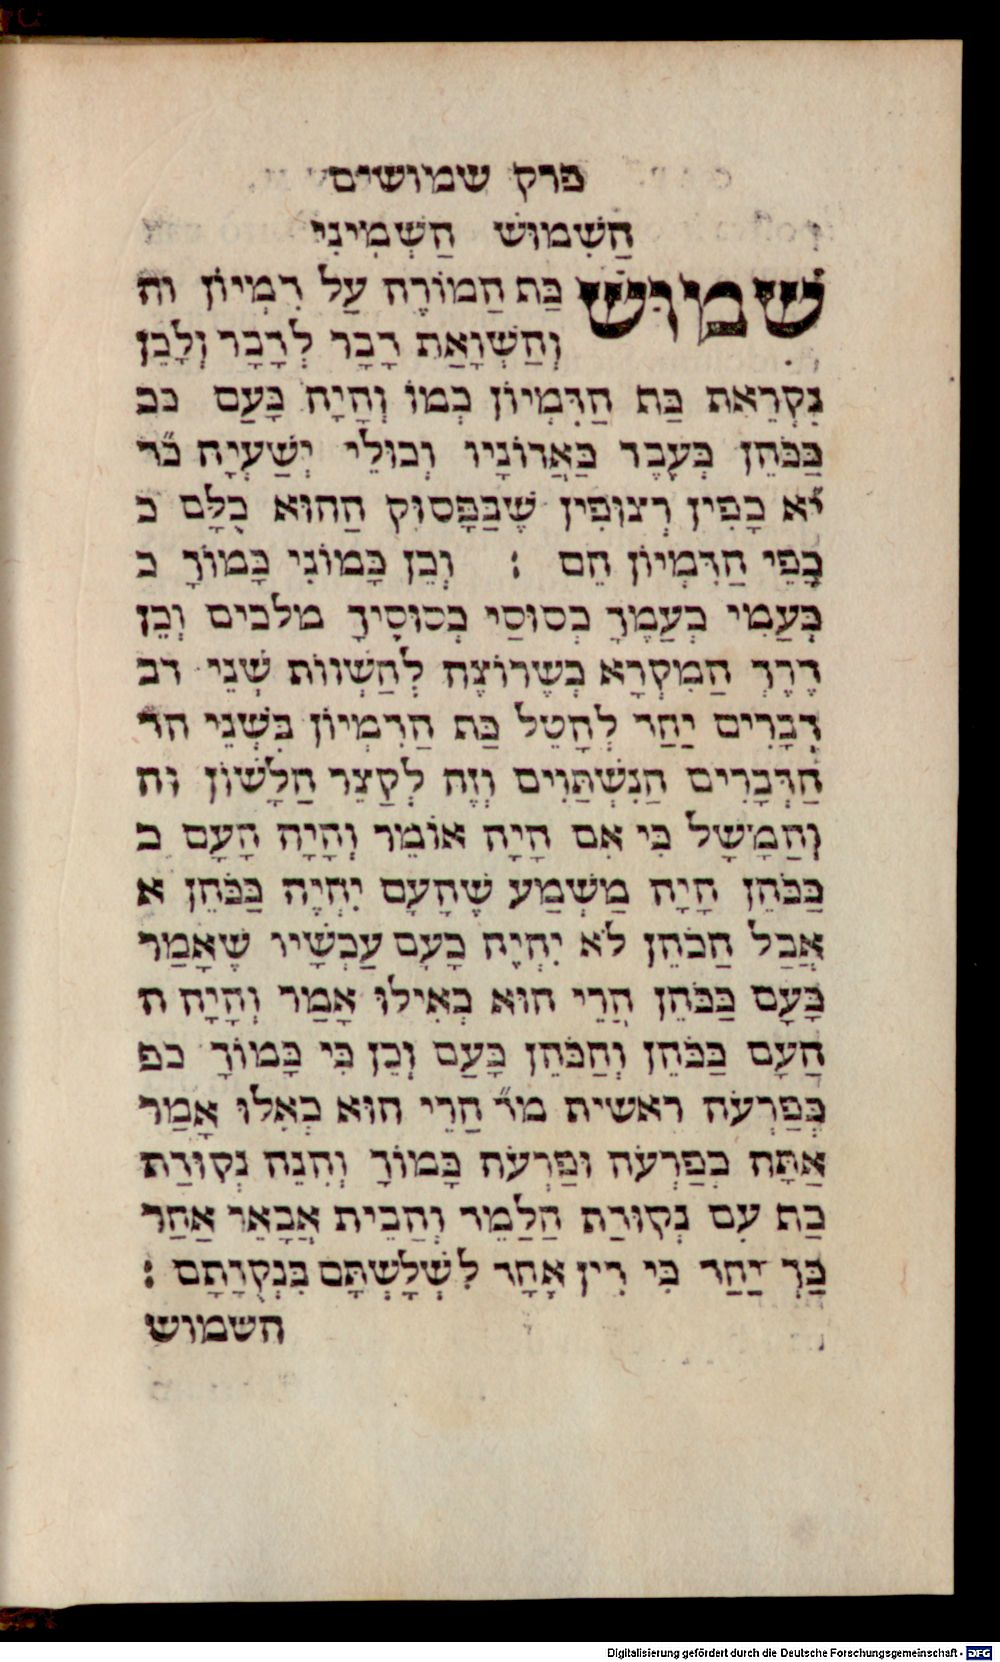 פרק שמושים
הַשִׁמוּשׁ הַשְׁמִינִי
שִׁמוּשׁ כַּת הַמוֹרֶה עַל דִמְיוֹן וה
וְהַשְׁוָאַת דָבָר לְדָבָר וְלָכֵן
נִקְרֵאת כַּת הַדִּמְיוֹן כְּמוֹ וְהָיָה כָּעַם ככ
כַּכֹּהֵן כְּעֶבֶד כַּאֲדוֹנָיו וְכוּלֵי יְשַׁעְיָה כ״ד
י״א כָפִין רְצוּפִין שֶׁבַּפָּסוּק הַהוּא כֻלָּם כ
כָּפֵי הַדִּמְיוֹן הֵם : וְכֵן כָּמוֹנִי כָּמוֹךָ כ
כְּעַמִי כְעַמֶךָ כְּסוּסַי כְּסוּסֶיךָ מלכים וְכֵן
דֶרֶךְ הַמִקְרָא כְּשֶׁרוֹצֶה לְהַשְׁווֹת שְׁנֵי דב
דְבָרִים יַחַד לְהָטֵל כַּת הַדִמְיוֹן בִּשְׁנֵי הד
הַדְּבָרִים הַנִשְׁתַּוִים וְזֶה לְקַצֵר הַלָשׁוֹן וה
וְהַמָשָׁל כִּי אִם הָיָה אוֹמֵר וְהָיָה הָעָם כ
כַּכֹּהֵן הָיָה מַשְׁמַע שֶׁהָעָם יִהְיֶה כַּכֹּהֵן א
אֲבַל הַכֹּהֵן לֹא יִהְיֶה כָּעָם עַכְשָׁיו שֶׁאָמַר
כָּעָם כַּכֹּהֵן הֲרֵי הוּא כְּאִילוּ אָמַר וְהָיָה ה
הָעָם כַּכֹּהֵן וְהַכֹּהֵן כָּעַם וְכֵן כִּי כָּמוֹךָ כפ
כְּפַרְעֹה ראשית מ״ד הֲרֵי הוּא כְּאִלוּ אָמַר
אַתָּה כְּפַרְעֹה וּפַרְעֹה כָּמוֹךָ וְהִנֵה נְקוּדַת
כַּת עִם נְקוּדַת הַלַמֵד וְהַבֵית אֲבָאֵר אַחַר
כַּךְ יַחַד כִּי דִין אֶחָד לִשְׁלָשְׁתָּם בִּנְקֻדָתָם :
השמוש
Digitalisierung gefördert durch die Deutsche Forschungsgemeinschaft - DFG